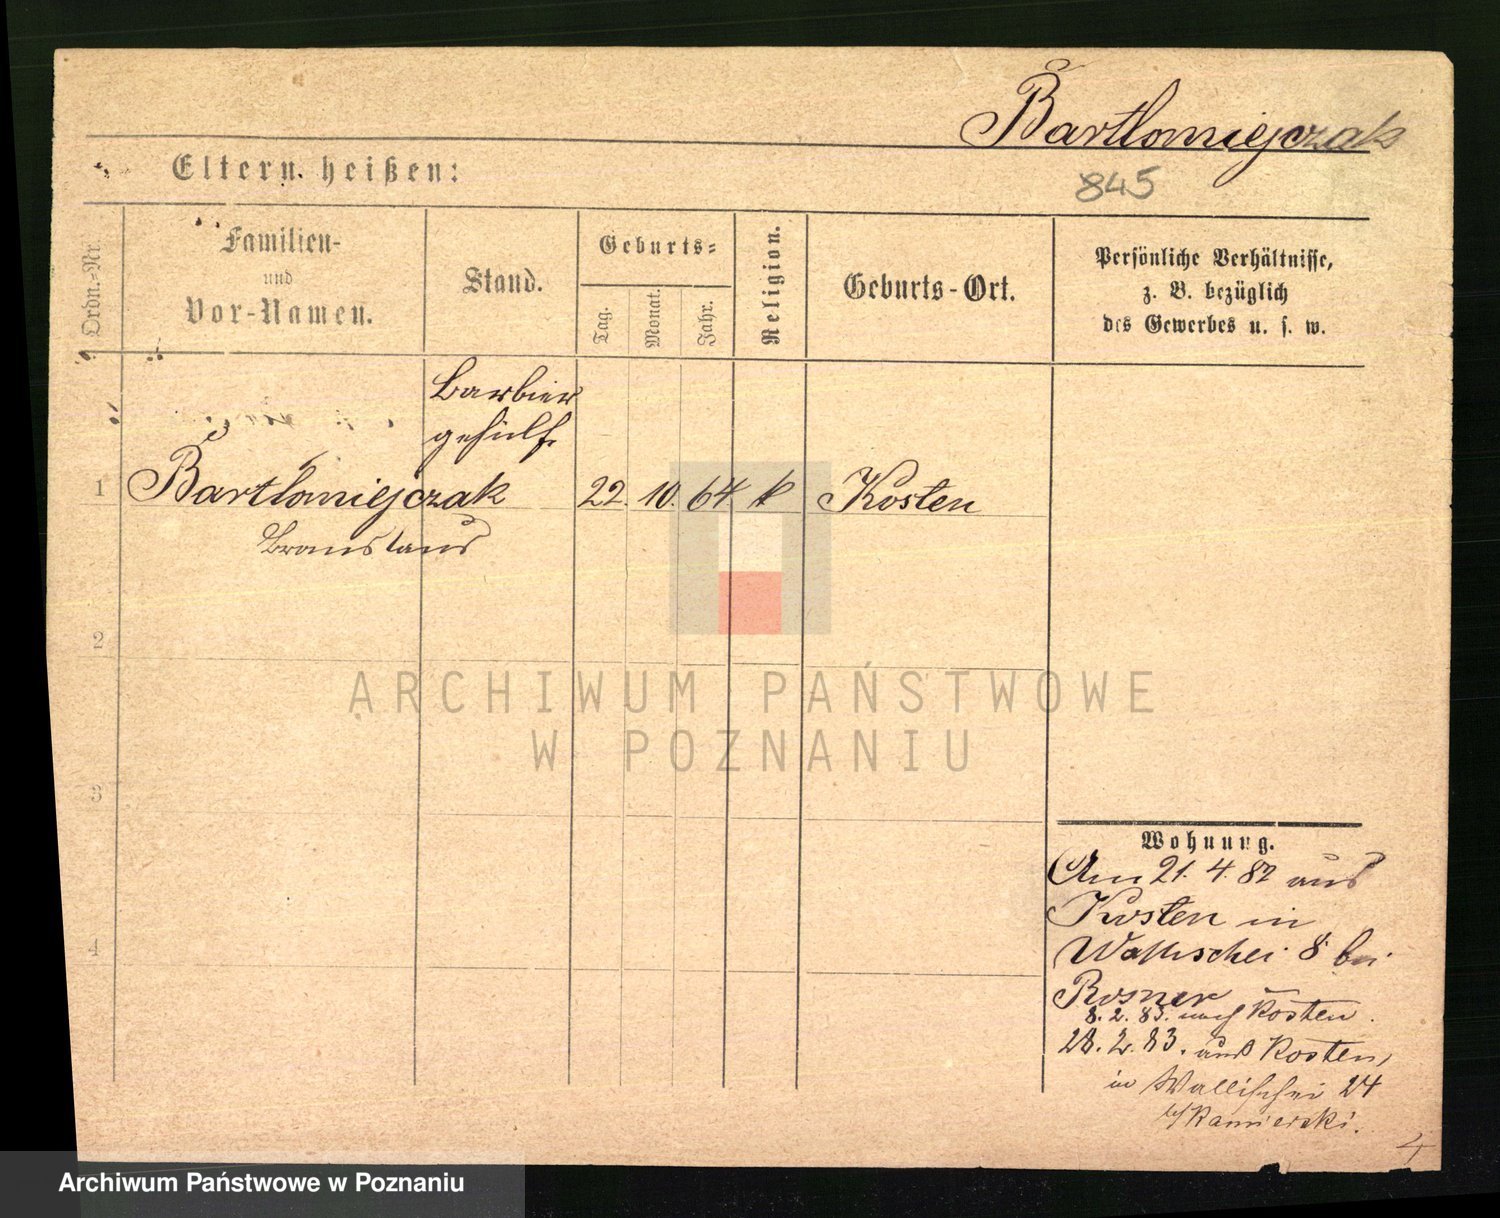 Bartlomiejczak
Eltern heißen:
845
Ordn.-Nr.
Familien-
und
Vor-Namen.
Stand.
Geburts-
Tag.
Monat.
Jahr.
Religion.
Geburts-Ort.
Persönliche Verhältnisse,
z. B. bezüglich
des Gewerbes u. s. w.
Barbier
gehülfe
1 Bartlomiejczak 22. 10. 64 k Kosten
2
3
4
Wohnung.
Am 21. 4. 82 aus
Kosten in
Wallischei 8 bei
Rosner
8. 2. 83. nach Kosten.
28. 2. 83. aus Kosten,
in Wallischei 24
b/ Kamierski.
4
ARCHIWUM PAŃSTWOWE
W POZNANIU
Archiwum Państwowe w Poznaniu